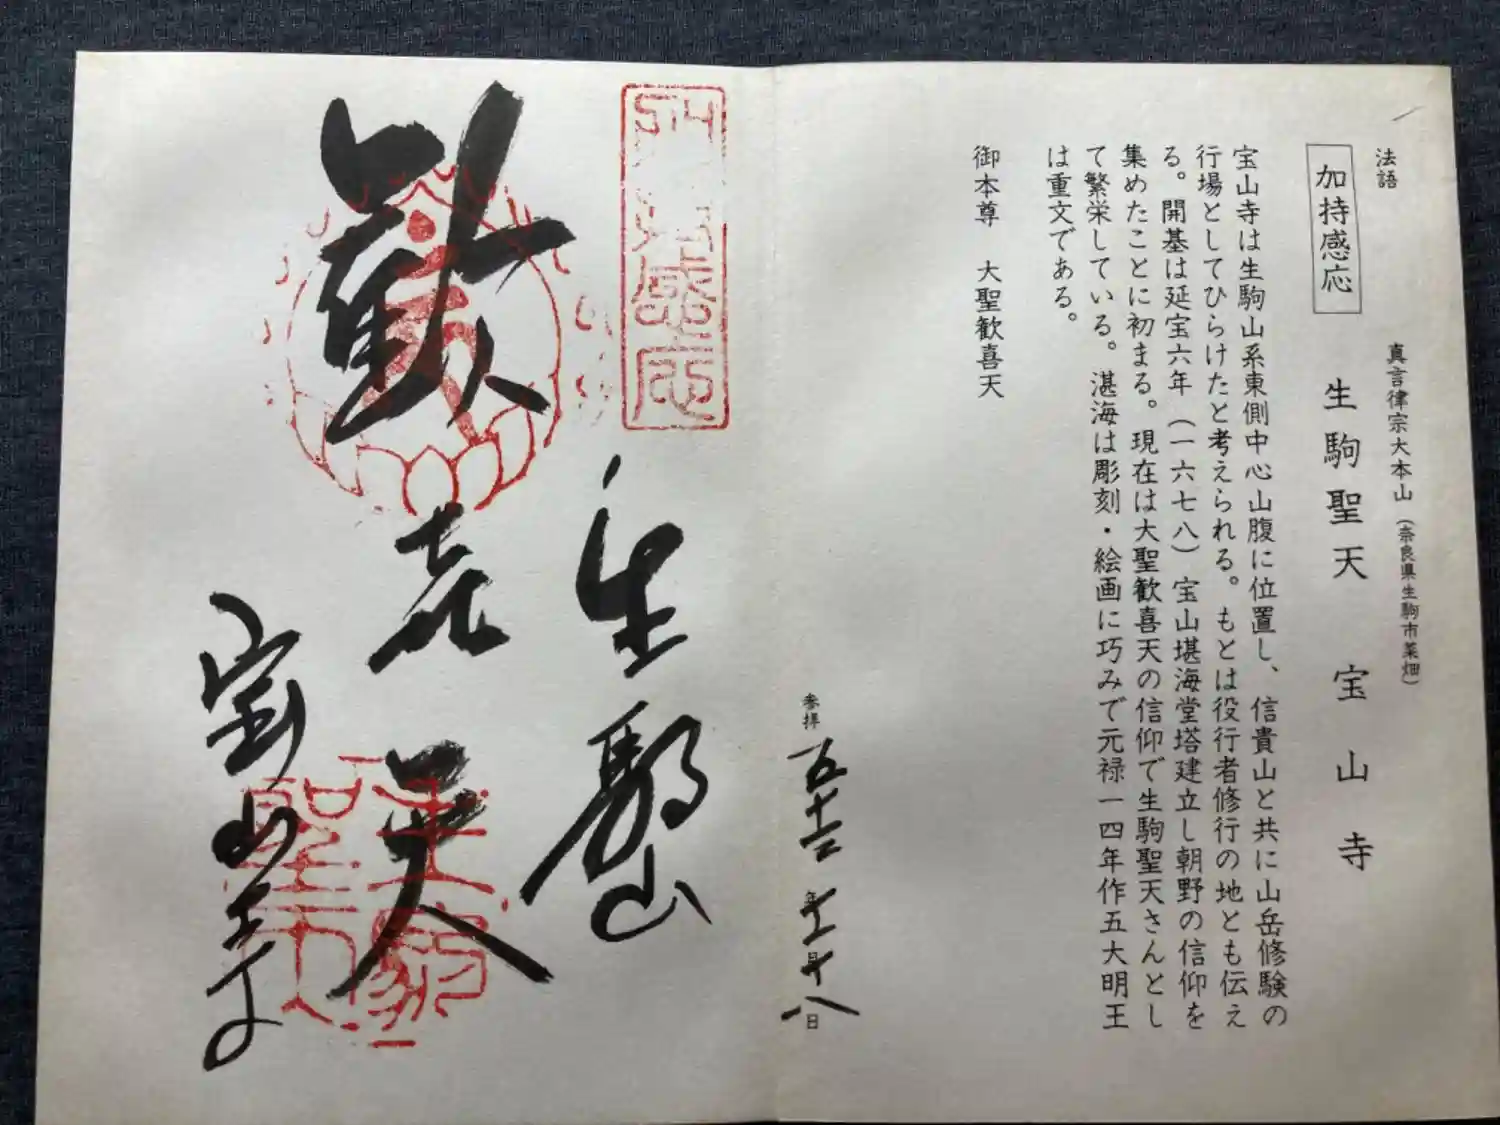 法語
真言律宗大本山（奈良県生駒市菜畑）
加持感応
生駒聖天 宝山寺
宝山寺は生駒山系東側中心山腹に位置し、信貴山と共に山岳修験の
行場としてひらけたと考えられる。もとは役行者修行の地とも伝え
る。開基は延宝六年（一六七八）宝山堪海堂塔建立し朝野の信仰を
集めたことに初まる。現在は大聖歓喜天の信仰で生駒聖天さんとし
て繁栄している。湛海は彫刻・絵画に巧みで元禄一四年作五大明王
は重文である。
御本尊 大聖歓喜天
参拝 五十二年十一月十八日
加持感応
生駒山
歓喜天
生駒聖天
宝山寺